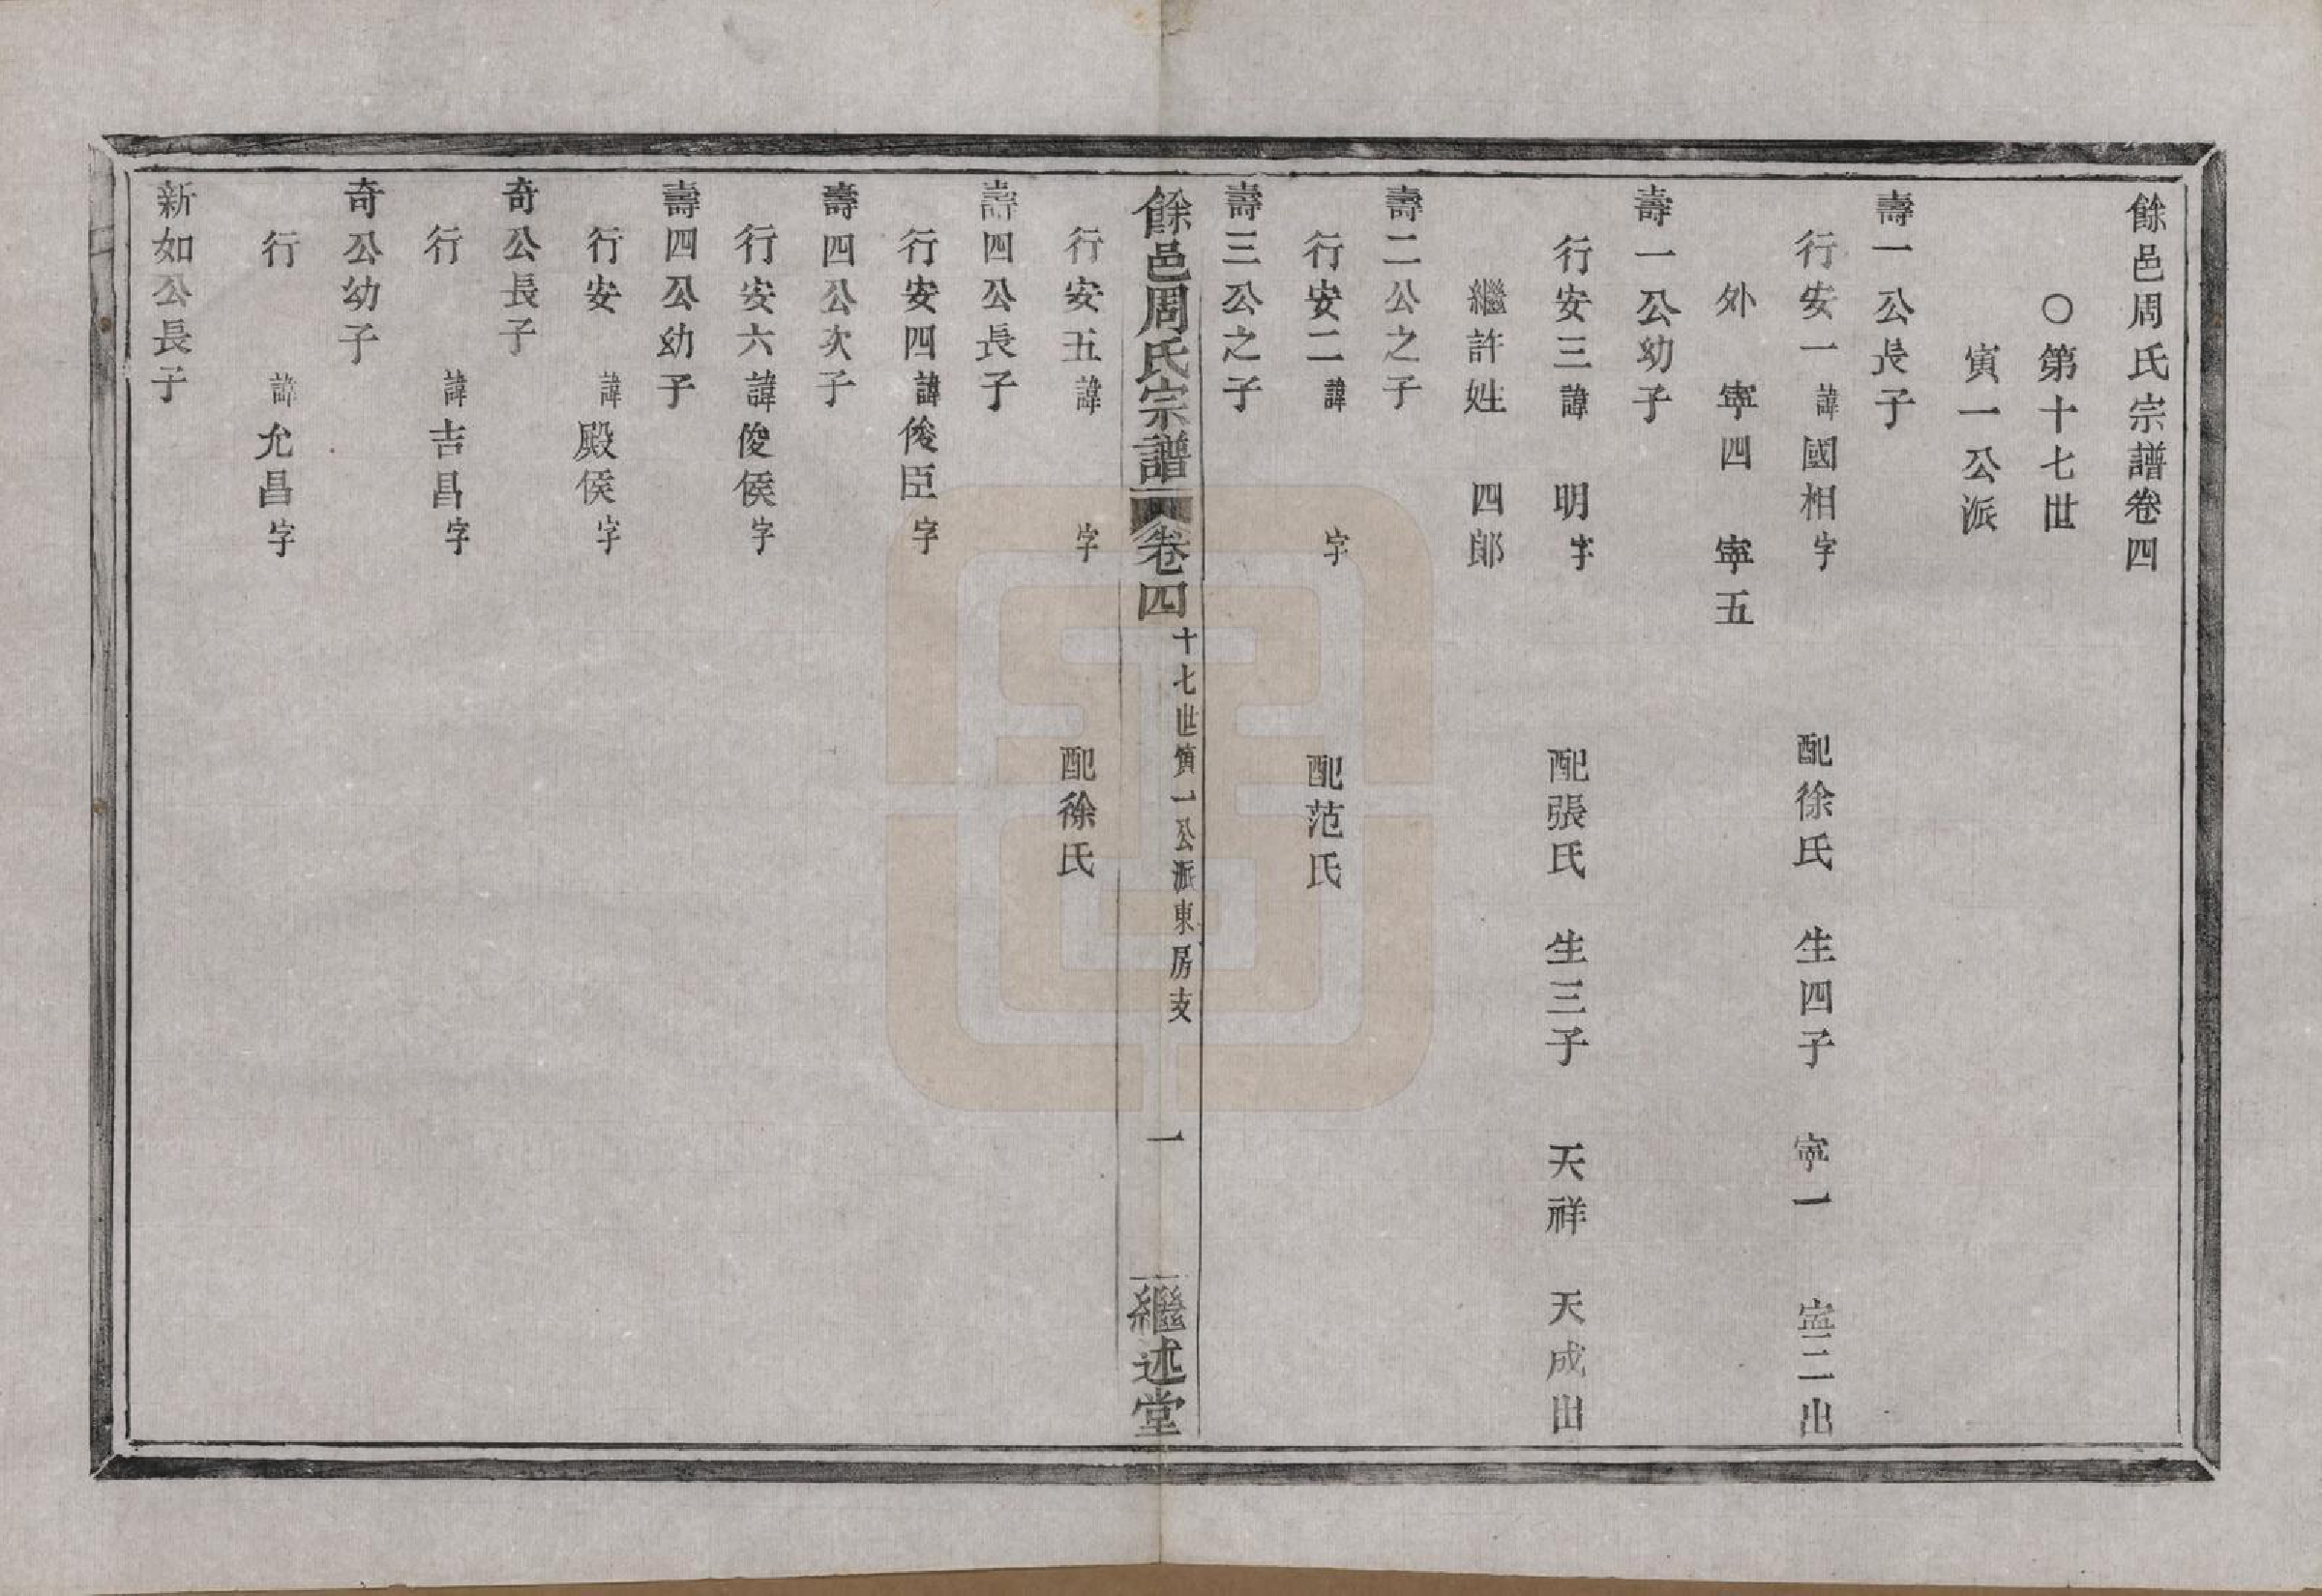 餘邑周氏宗譜卷四
○第十七世
寅一公派
壽一公長子
行安一 諱國相 字 配徐氏 生四子 寧一 寧二出
外 寧四 寧五
壽一公幼子
行安三 諱 明 字 配張氏 生三子 天祥 天成出
繼許姓 四郎
壽二公之子
行安二 諱 字 配范氏
壽三公之子
餘邑周氏宗譜 卷四 十七世寅一公派東房支 一 繼述堂
行安五 諱 字 配徐氏
壽四公長子
行安四 諱俊臣 字
壽四公次子
行安六 諱俊侯 字
壽四公幼子
行安 諱殿侯 字
奇公長子
行 諱吉昌 字
奇公幼子
行 諱允昌 字
新如公長子